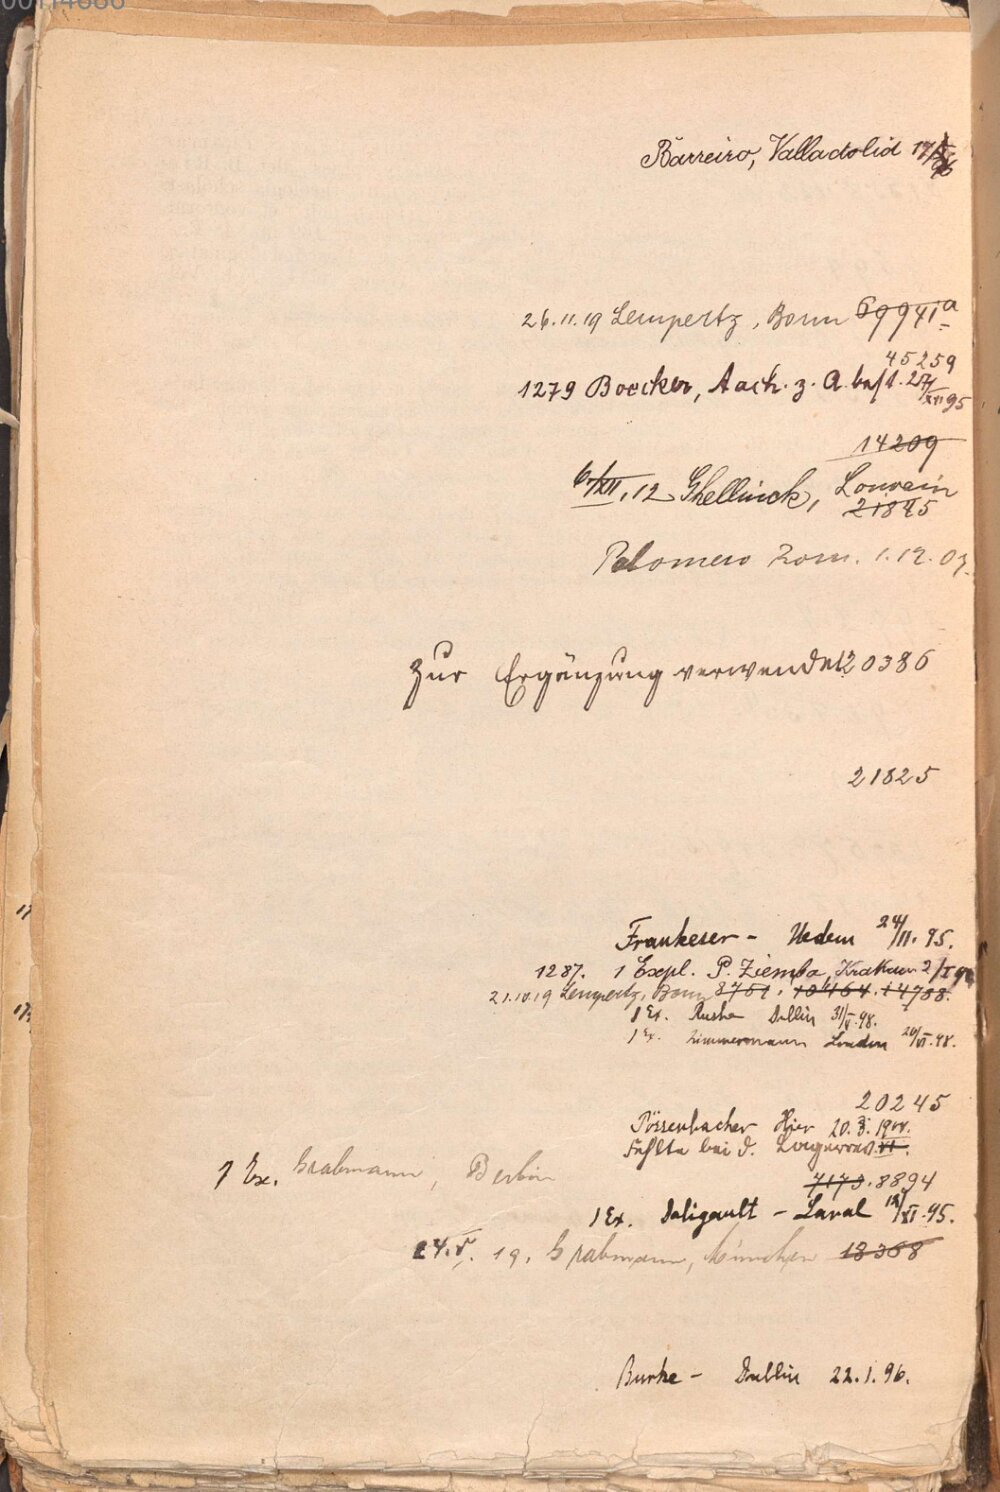 00114686
Barreiro, Valladolid 17/
26.11.19 Lempertz, Bonn 69941a
45259
1279 Boecker, Aach. z. A. best. 27/XII 95
14209
6/XII.12 Ghellinck, Louvain
21895
Palomero Rom. 1.12.07.
Zur Ergänzung verwendet 20386
21825
Frankeser - Uedem 24/11.95.
1287. 1 Expl. P. Ziemba, Krakau 2/I
21.10.19 Lempertz, Bonn 8751. 10464. 14788.
1 Ex. Dublin 31/V.98.
1 Ex. Zimmermann London 20/VI.98.
20245
Pössenbacher Hier 20.3.1900.
Fehlte bei d. Lagerrev. VI.
1 Ex. Grabmann, Berlin
7173. 8894
1 Ex. Daligault - Laval 12/XI.95.
24.V. 19. Grabmann, München 18368
Burke - Dublin 22.1.96.